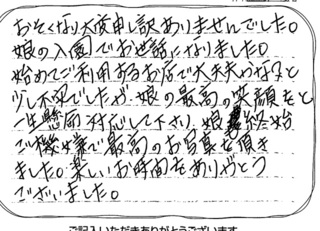 おそくなり大変申し訳ありませんでした。
娘の入園でお世話になりました。
始めてご利用するお店で大丈夫かなと
少し不安でしたが、娘の最高の笑顔をと
一生懸命対応して下さり、娘も終始
ご機嫌で最高のお写真を頂き
ました。楽しいお時間をありがとう
ございました。
ご記入いただきありがとうございます